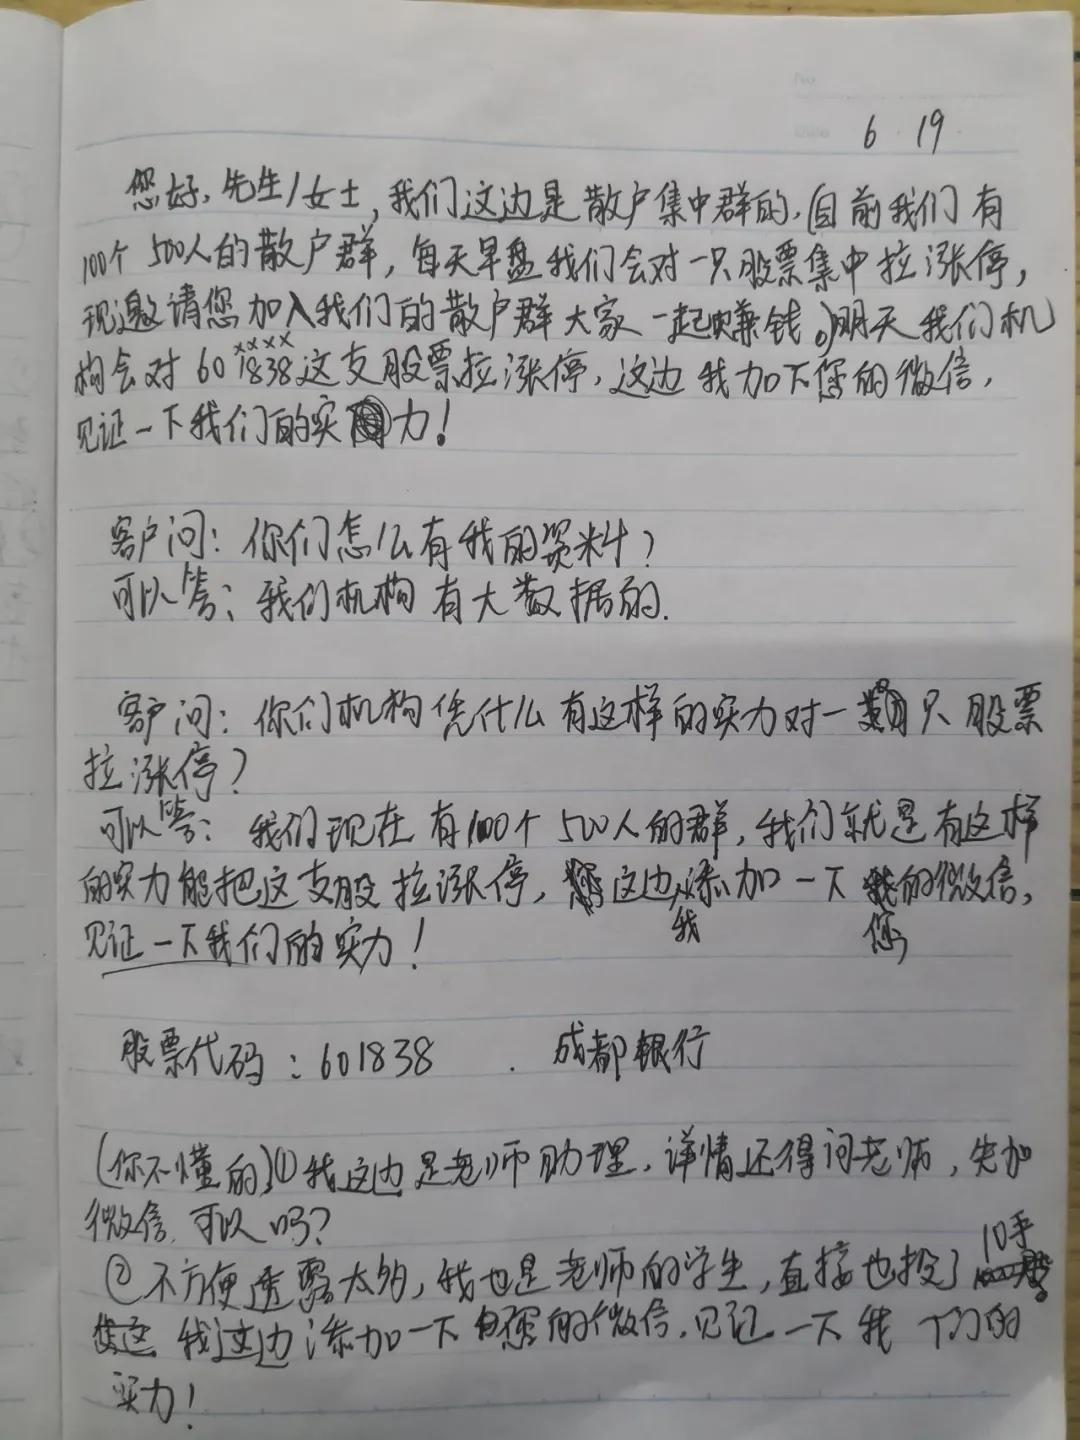 No
Date 6.19
您好,先生/女士,我们这边是散户集中群的,目前我们有
100个500人的散户群,每天早盘我们会对一只股票集中拉涨停,
现邀请您加入我们的散户群大家一起赚钱。明天我们机
××××
构会对601838这支股票拉涨停,这边我加下您的微信,
见证一下我们的实力!
客户问:你们怎么有我的资料?
可以答:我们机构有大数据的.
客户问:你们机构凭什么有这样的实力对一只股票
拉涨停?
可以答:我们现在有100个500人的群,我们就是有这样
的实力能把这支股拉涨停,这边我添加一下您的微信,
见证一下我们的实力!
股票代码:601838 . 成都银行
(你不懂的)①我这边是老师助理,详情还得问老师,先加
微信,可以吗?
②不方便透露太多,我也是老师的学生,直接也投了10手
我这边添加一下您的微信,见证一下我们的
实力!